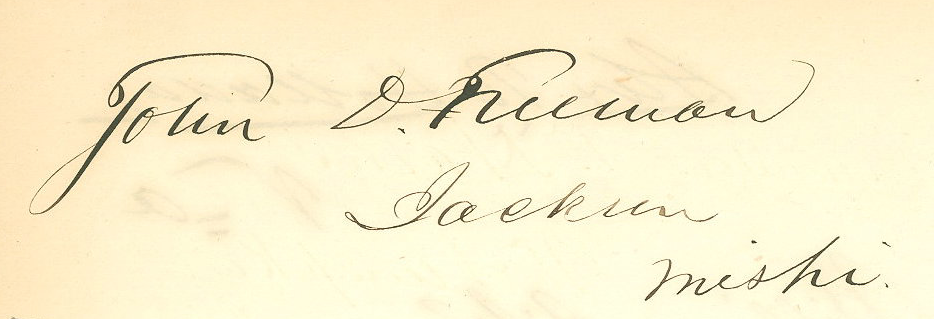 John D. Freeman
Jackson
Misspi.